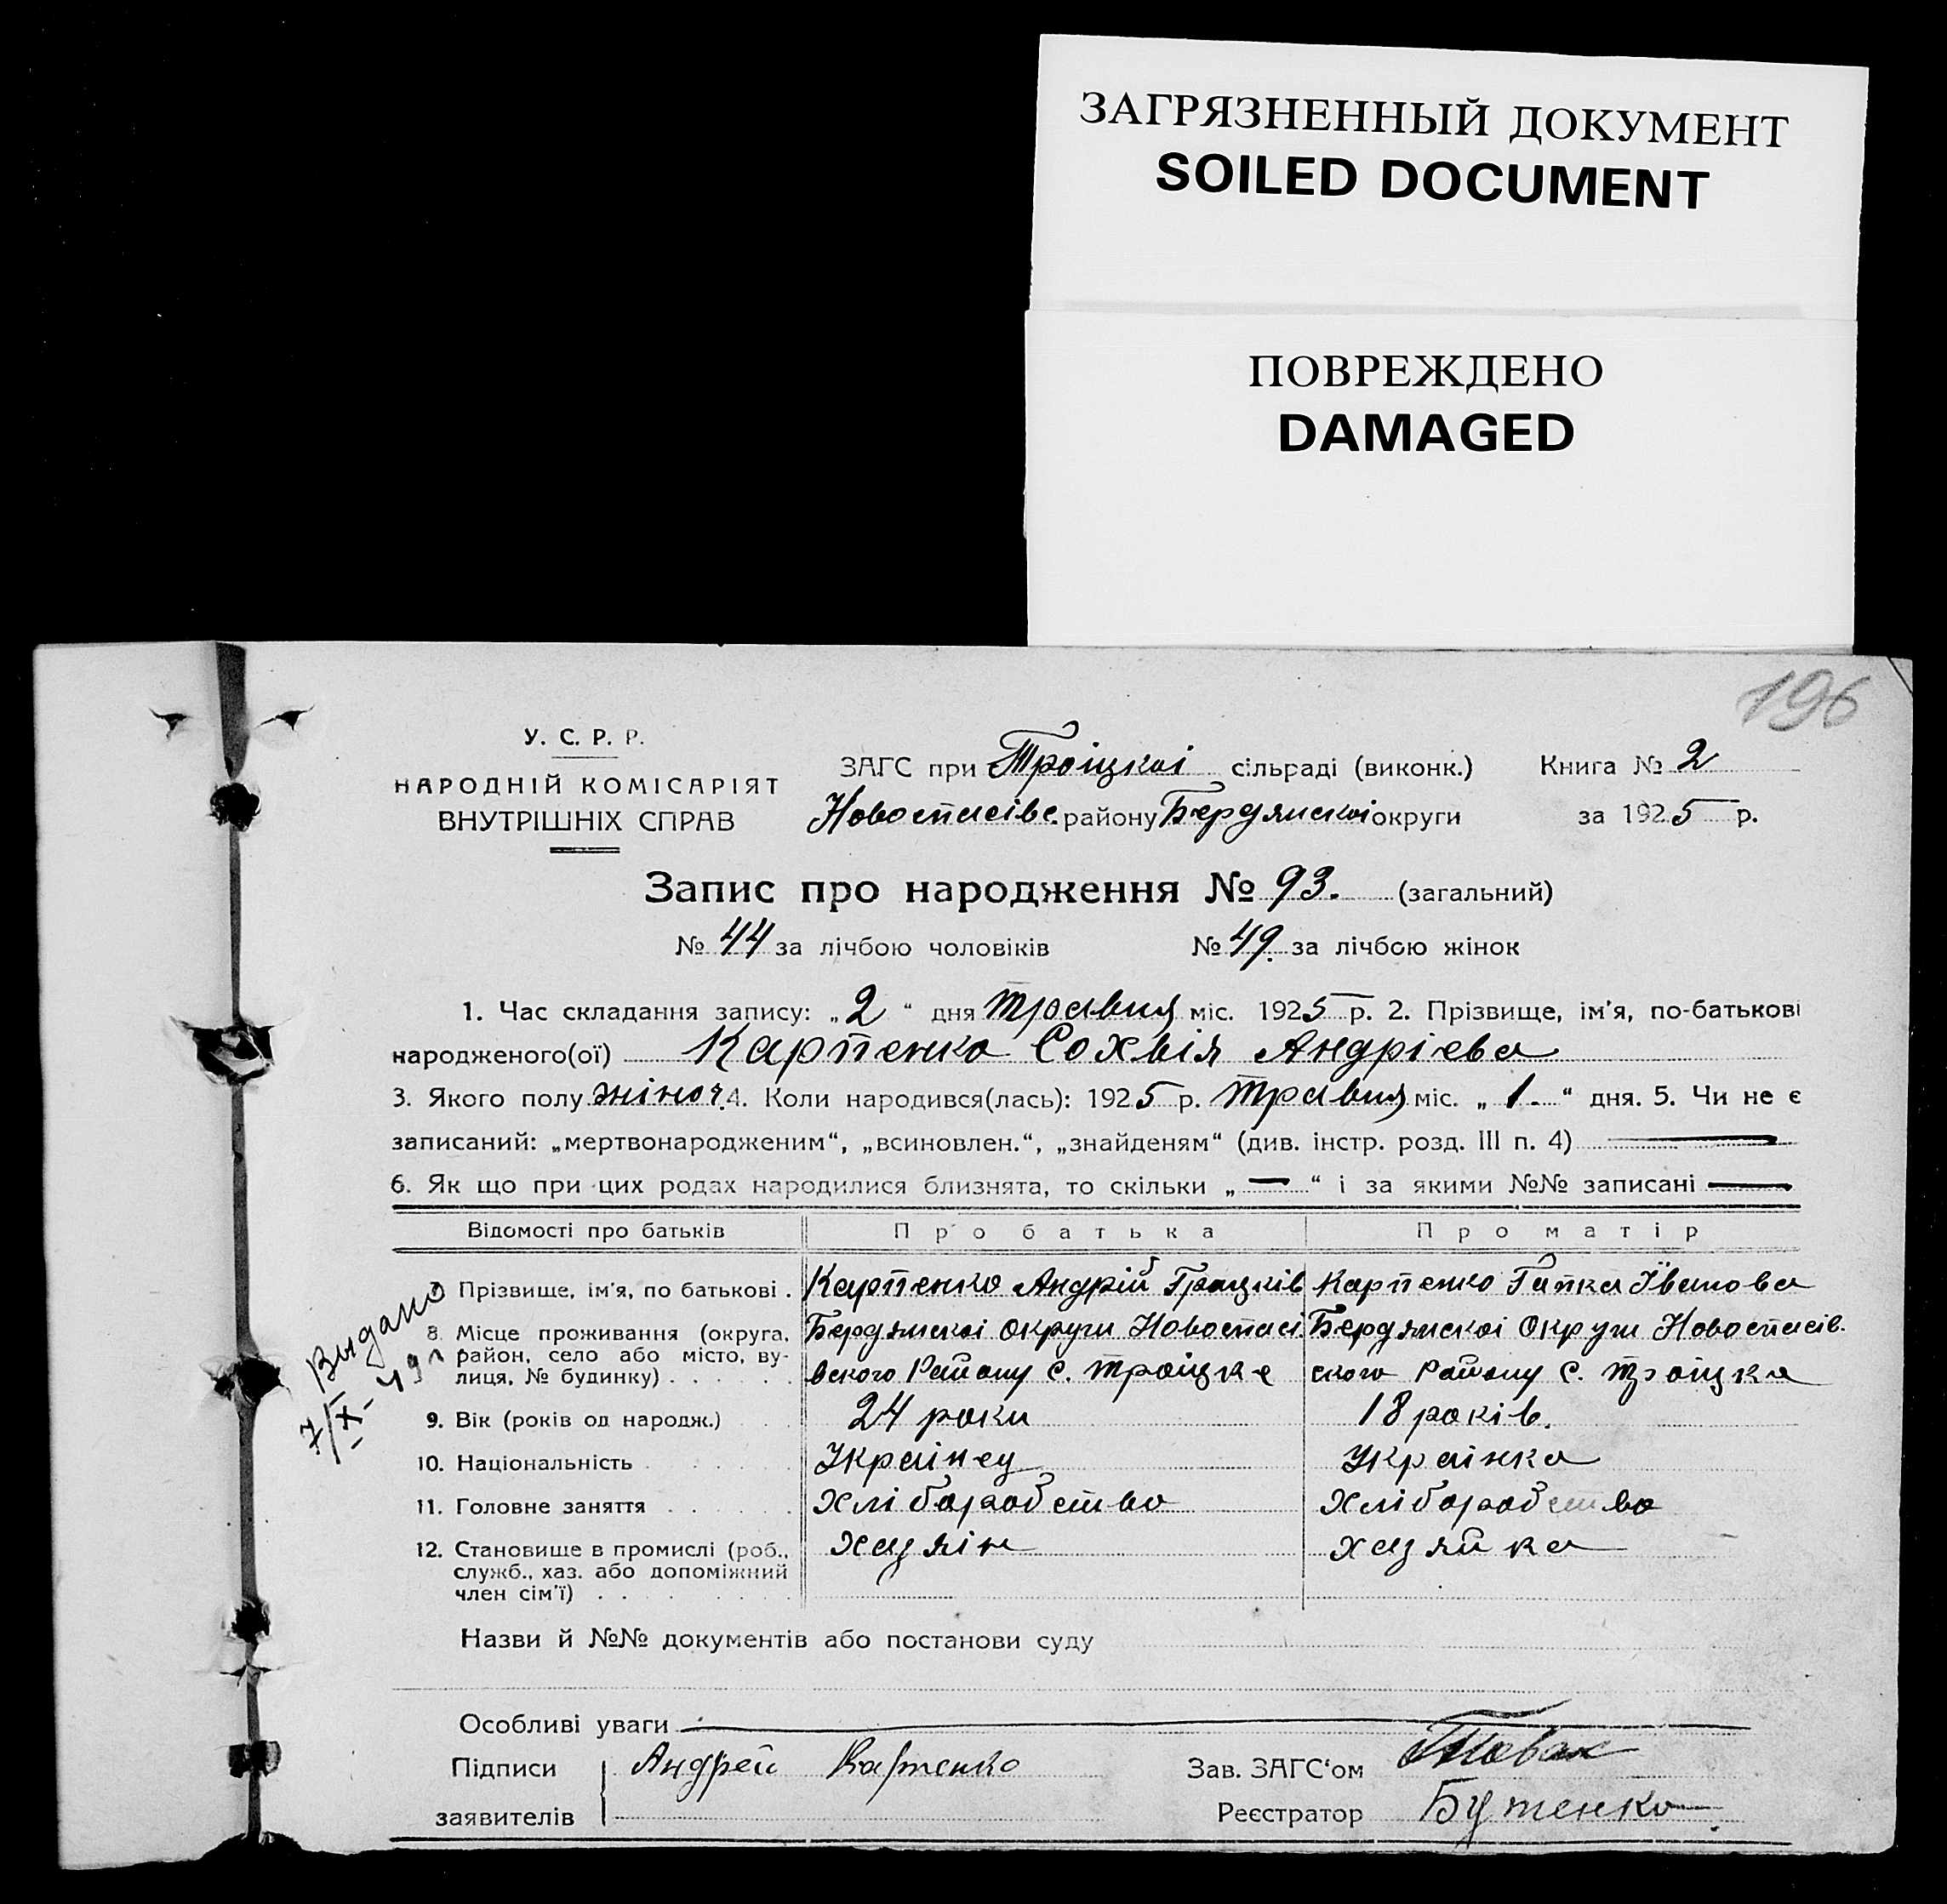 ЗАГРЯЗНЕННЫЙ ДОКУМЕНТ
SOILED DOCUMENT
ПОВРЕЖДЕНО
DAMAGED
196
У. С. Р. Р.
НАРОДНІЙ КОМІСАРІЯТ
ВНУТРІШНІХ СПРАВ
ЗАГС при Троіцкоі сільраді (виконк.) Книга № 2
Новоспасівс. району Бердянскоі округи за 1925 р.
Запис про народження № 93. (загальний)
№ 44 за лічбою чоловіків № 49. за лічбою жінок
1. Час складання запису: „2“ дня Травня міс. 1925 р. 2. Прізвище, ім'я, по-батькові
народженого(ої) Карпенко Сохвія Андрієва
3. Якого полу жіноч. 4. Коли народився(лась): 1925 р. Травня міс. „1.“ дня. 5. Чи не є
записаний: „мертвонародженим“, „всиновлен.“, „знайденям“ (див. інстр. розд. III п. 4) —
6. Як що при цих родах народилися близнята, то скільки „—“ і за якими №№ записані —
Відомості про батьків Про батька Про матір
Прізвище, ім'я, по батькові . Карпенко Андрій Карпенко Гапка Іванова
8. Місце проживання (округа, Бердянскоі округи Новоспасі Бердянскоі Округи Новоспасів.
район, село або місто, ву-
лиця, № будинку) . . . . . . вского Району С. Троіцке ского Району С. Троіцке
Видано
7/IX-49
9. Вік (років од народж.) 24 роки 18 років.
10. Національність Украінец Украінка
11. Головне заняття хліборобство хліборобство
12. Становище в промислі (роб., хазяін хазяйка
служб., хаз. або допоміжний
член сім'ї)
Назви й №№ документів або постанови суду
Особливі уваги —
Підписи Андрей Карпенко Зав. ЗАГС'ом
заявителів Реєстратор Бутенко